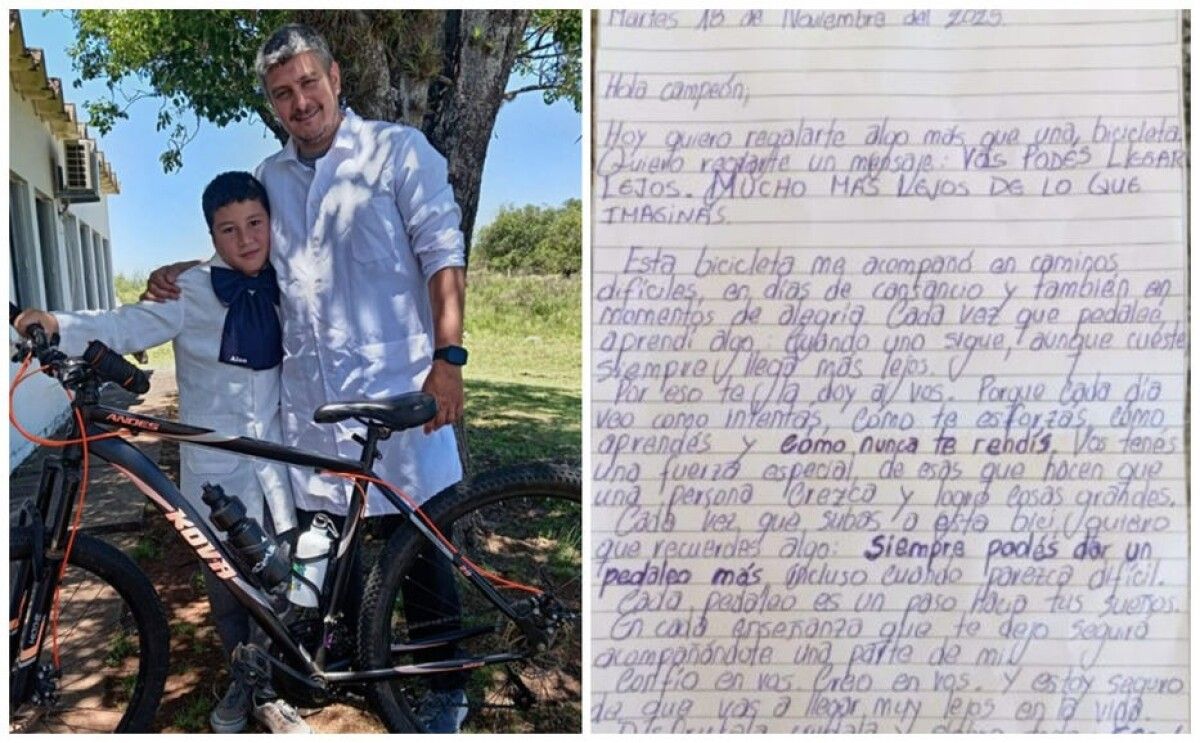 ANDES
KOVA
MOVE
Martes 18 de Noviembre del 2025.
Hola campeón,
Hoy quiero regalarte algo más que una bicicleta.
Quiero regalarte un mensaje: VOS PODÉS LLEGAR
LEJOS. MUCHO MÁS LEJOS DE LO QUE
IMAGINÁS.
Esta bicicleta me acompañó en caminos
difíciles, en días de cansancio y también en
momentos de alegría. Cada vez que pedaleé,
aprendí algo: Cuando uno sigue, aunque cueste
siempre llega más lejos.
Por eso te la doy a vos. Porque cada día
veo como intentas, Cómo te esforzas, cómo
aprendés y cómo nunca te rendís. Vos tenés
una fuerza especial, de esas que hacen que
una persona crezca y logre cosas grandes.
Cada vez que subas a esta bici, quiero
que recuerdes algo: Siempre podés dar un
pedaleo más, incluso cuando parezca difícil.
Cada pedaleo es un paso hacia tus sueños.
En cada enseñanza que te dejo seguirá
acompañándote una parte de mi.
Confío en vos. Creo en vos. Y estoy seguro
de que vas a llegar muy lejos en la vida.